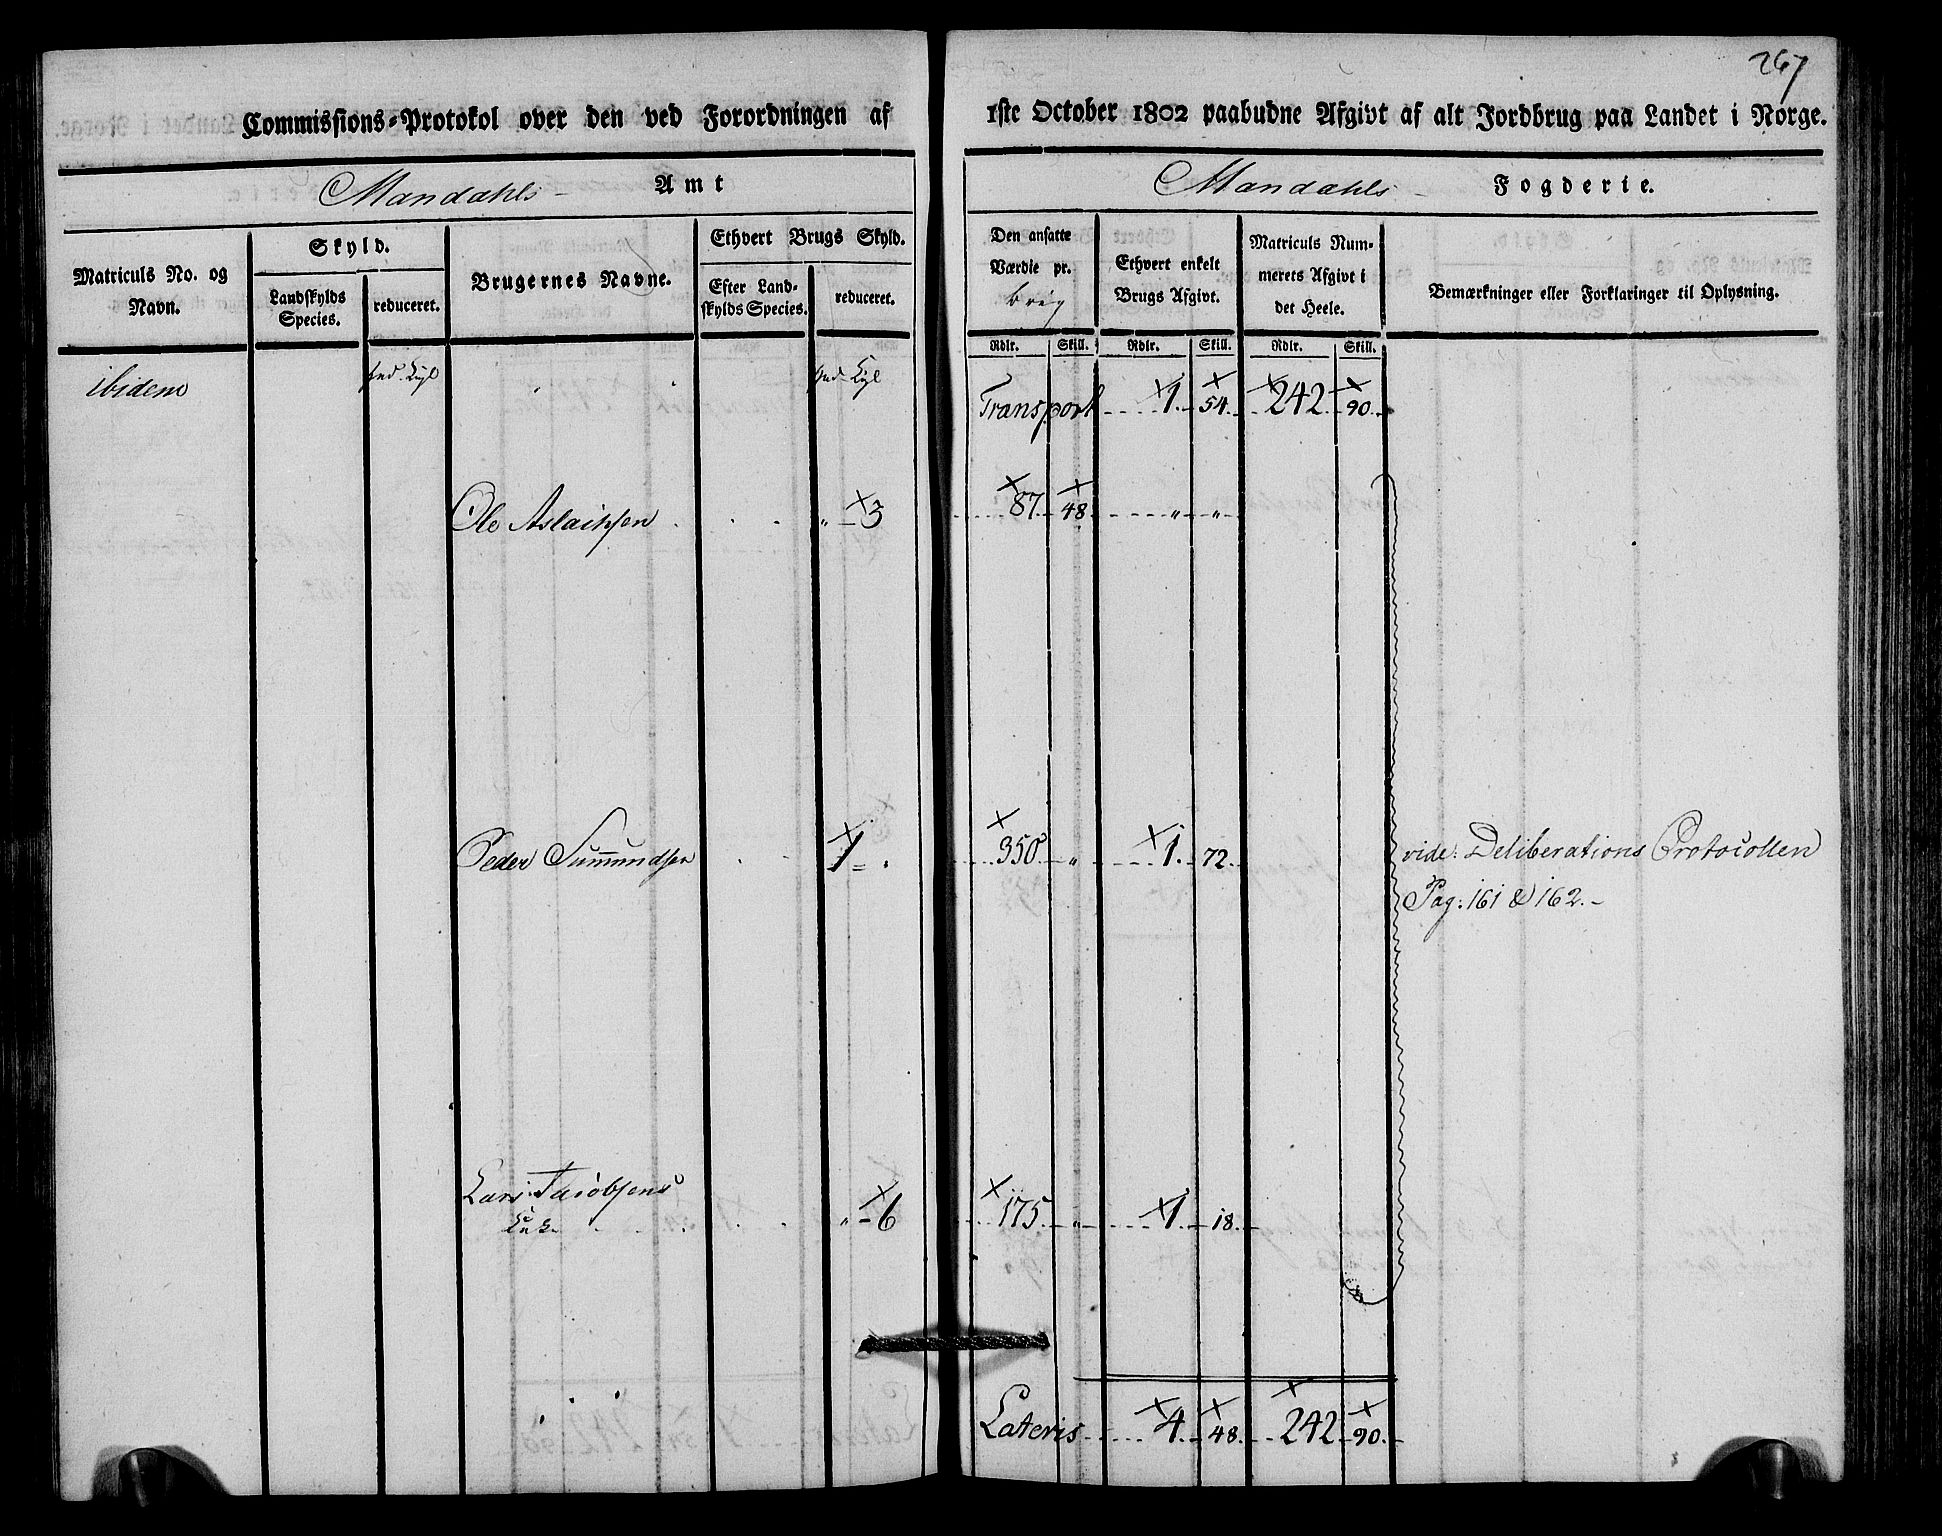 267
Commissions-Protokol over den ved Forordningen af 1ste October 1802 paabudne Afgivt af alt Jordbrug paa Landet i Norge.
Mandahls Amt
Mandahls Fogderie.
Matriculs No. og Navn.
Skyld.
Landskylds Species.
reduceret.
Brugernes Navne.
Ethvert Brugs Skyld.
Efter Landskylds Species.
reduceret.
Den ansatte Værdie pr.
Ethvert enkelt Brugs Afgivt.
Matriculs Nummerets Afgivt i det Heele.
Bemærkninger eller Forklaringer til Oplysning.
Rdlr. Skill. Rdlr. Skill. Rdlr. Skill.
ibidem Transport 1. 54. 242. 90.
Ole Aslachsen " 3 87. 48. " "
Peder Summundsen 1 " . 350 " 1. 72. vide: Deliberations Protocollen
Pag: 161 & 162.
Lars Jacobsens
" 6 175. " 1. 18.
Lateris 4. 48. 242. 90.